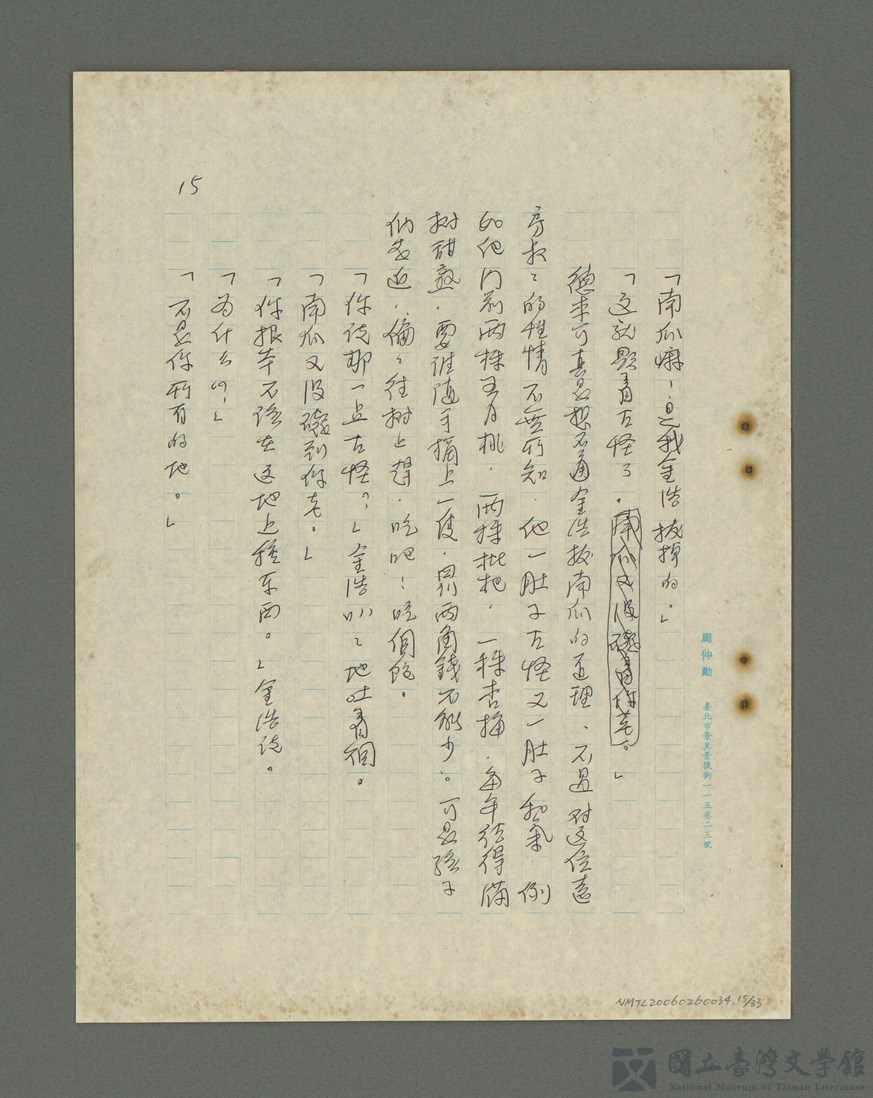 15
「南瓜嘛！是我金浩拔掉的。」
「这就顯着古怪了。南瓜又没碍着你老。」
德来可真是想不通金浩拔南瓜的道理、不過对这位遠
房叔々的性情不無所知．他一肚子古怪又一肚子和氣．例
如他门前兩株五月桃．兩株枇杷．一株杏梅．每年結得滿
树甜熟．要誰随手摘上一隻．罰兩角錢不能少。可是孩子
们去近．偏々往树上趕．吃吧！吃個飽。
「你说那一点古怪？」金浩叭々地吐着烟。
「南瓜又没碍到你老。」
「你根本不該在这地上種东西。」金浩说。
「为什么呐？」
「不是你所有的地。」
周仲勳　臺北市景美景後街一一五巷二三號
NMTL20060260034.15/33
國立臺灣文學館
National Museum of Taiwan Literature